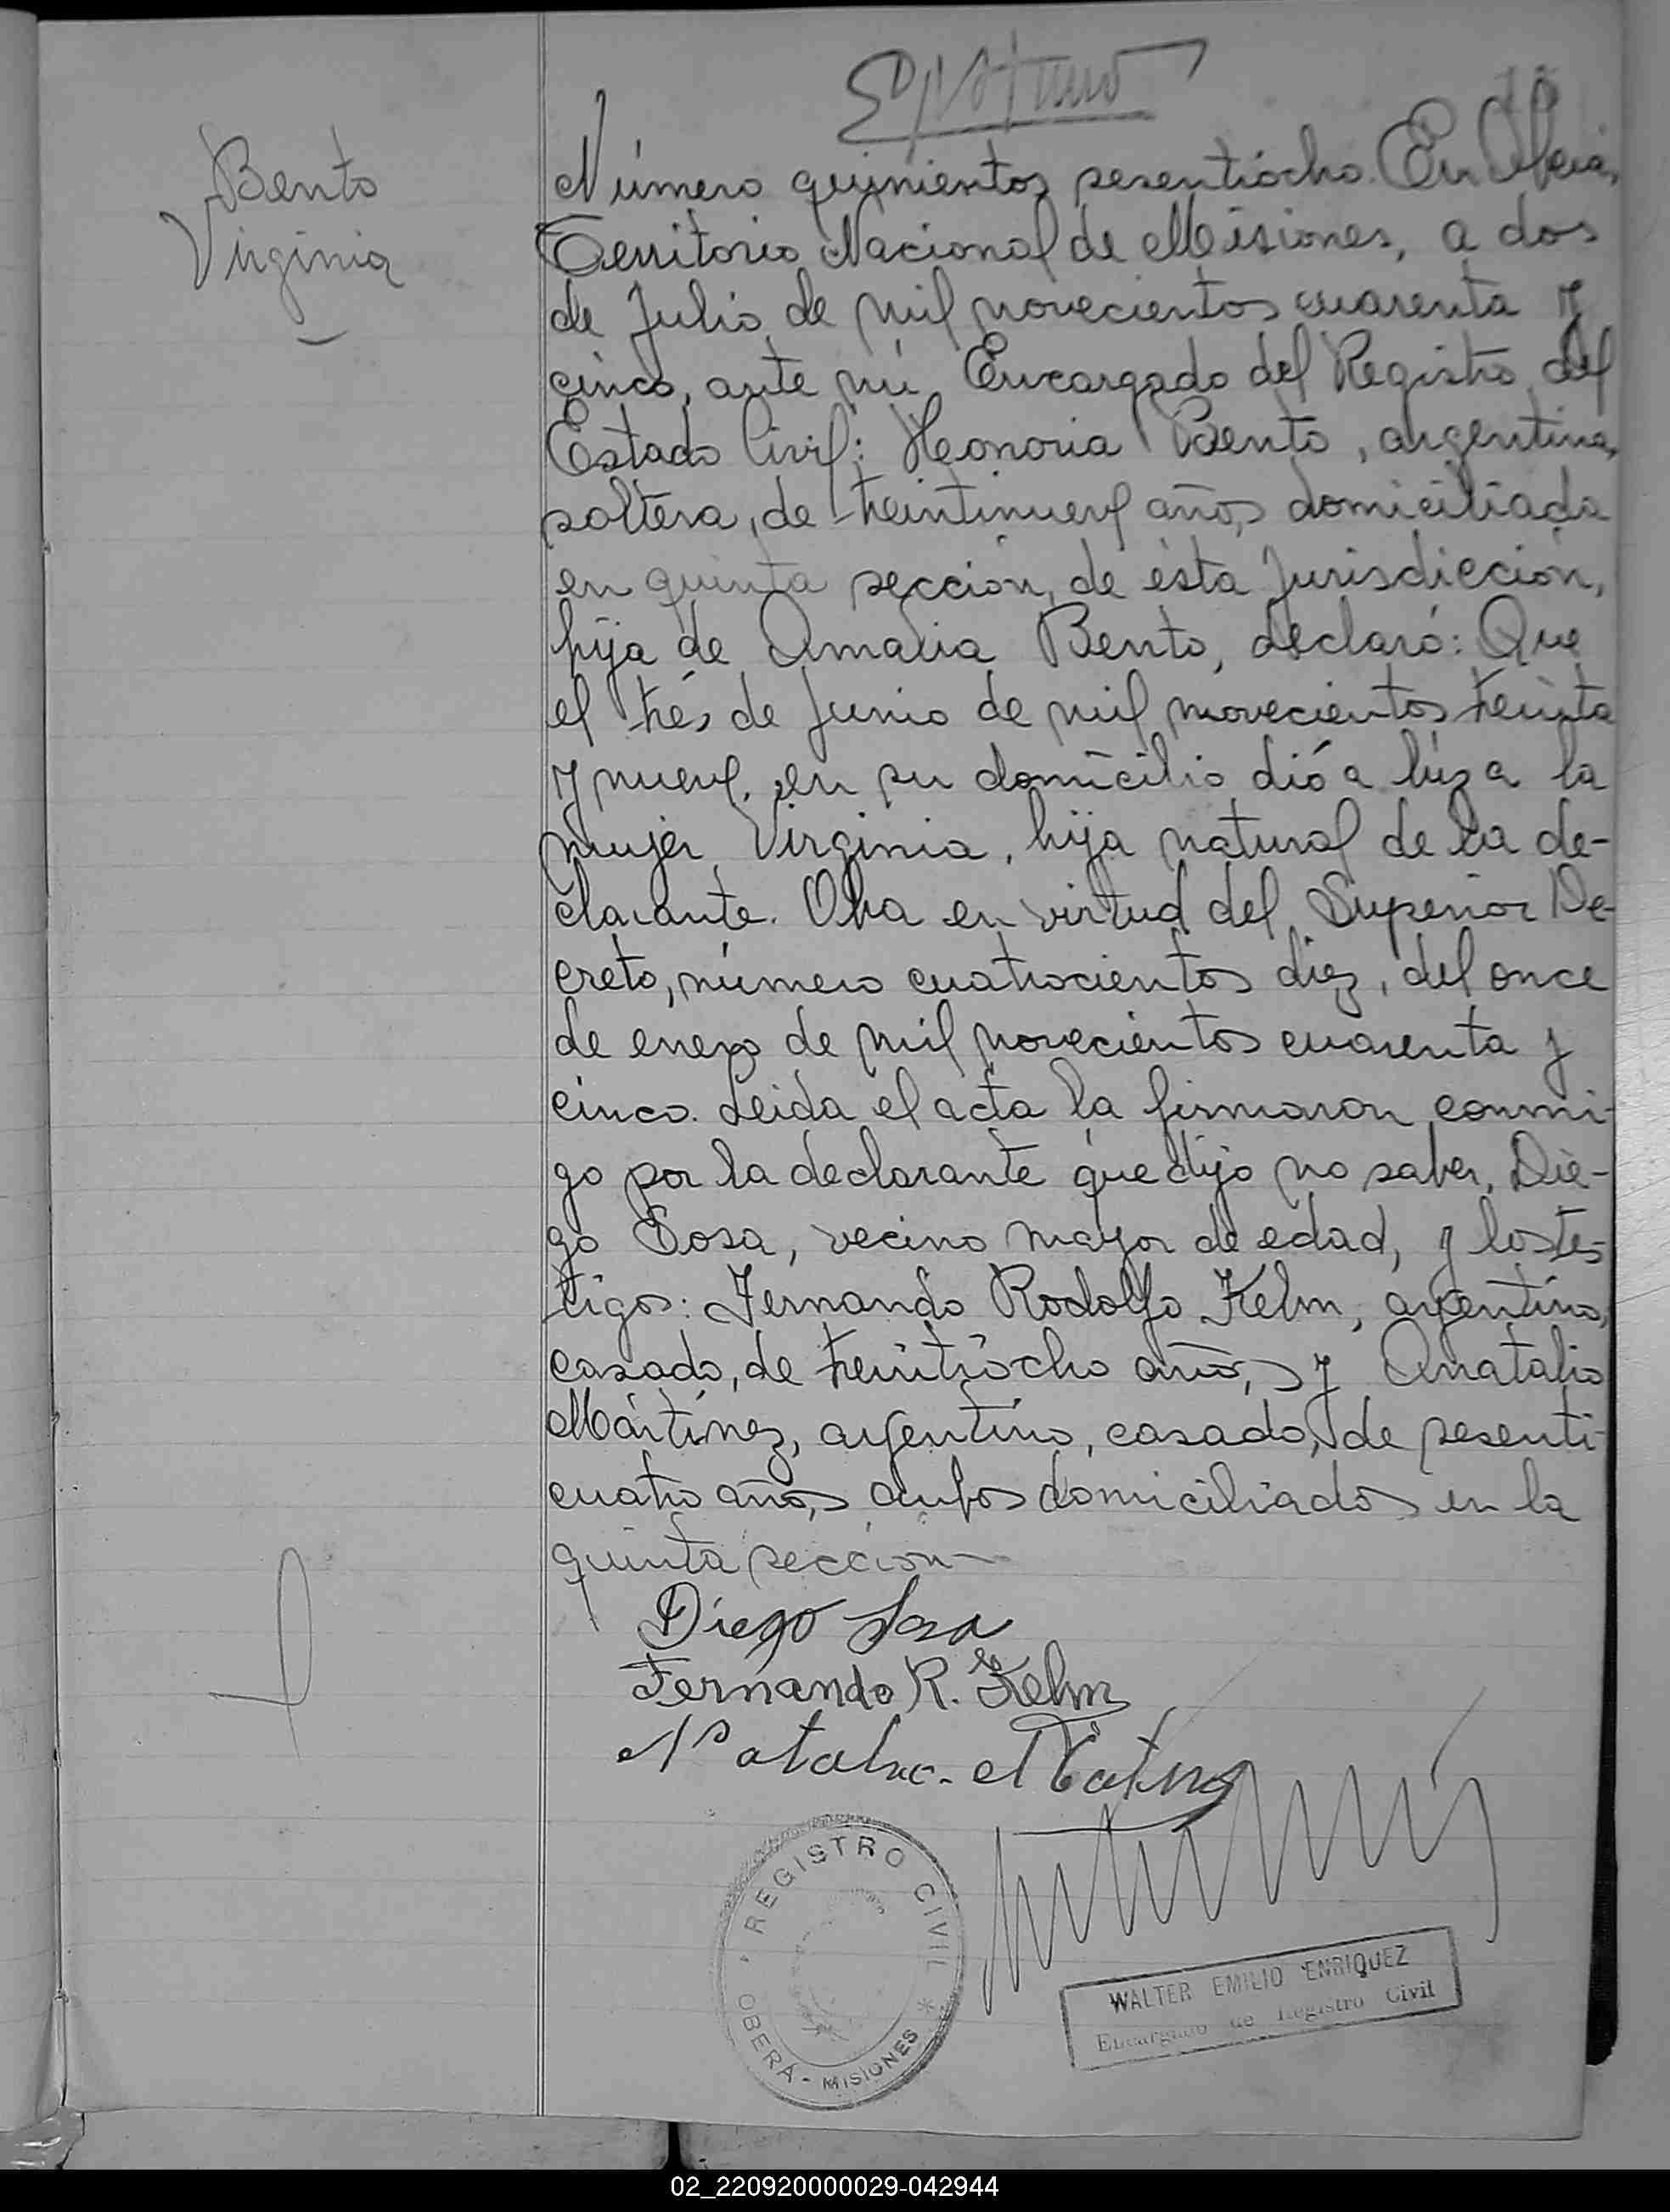 Bento
Virginia
Número quinientos sesentiocho. En Oberá,
Territorio Nacional de Misiones, a dos
de Julio de mil novecientos cuarenta y
cinco, ante mí, Encargado del Registro del
Estado Civil: Honoria Bento, argentina,
soltera, de treintinueve años, domiciliada
en quinta sección, de ésta Jurisdicción,
hija de Amalia Bento, declaró: Que
el trés de Junio de mil novecientos treinta
y nueve, en su domicilio dió a lúz a la
mujer Virginia, hija natural de la de-
clarante. Obra en virtud del Superior De-
creto, número cuatrocientos diez, del once
de enero de mil novecientos cuarenta y
cinco. Leida el acta la firmaron conmi-
go por la declarante que dijo no saber, Die-
go Sosa, vecino mayor de edad, y los tes-
tigos: Fernando Rodolfo Kelm, argentino,
casado, de treintiocho años, y Anatalio
Mártínez, argentino, casado, de sesenti-
cuatro años, ambos domiciliados en la
quinta sección
Diego Sosa
Fernando R. Kelm
REGISTRO CIVIL
OBERÁ - MISIONES
WALTER EMILIO ENRIQUEZ
Encargado de Registro Civil
02_220920000029-042944